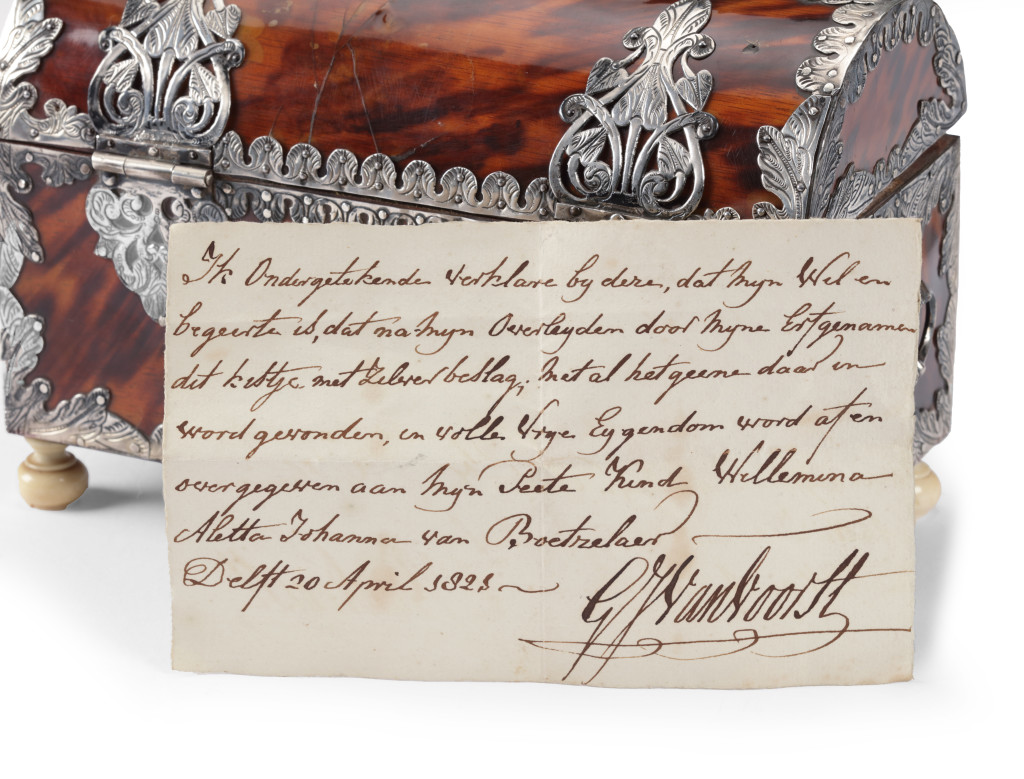 Ik Ondergetekende verklare by deze, dat Mÿn Wel en
begeerte is, dat na Mÿn Overleyden door Mÿne Erfgenamen
dit kistje met Zilver beslag, Met al het geene daar in
word gevonden, in volle Vrye Eygendom word af en
overgegeven aan Mÿn Peete Kind Willemina
Aletta Johanna van Boetzelaer
Delft 20 April 1821
G J Van Voorst